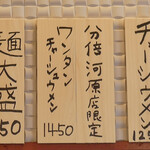 チャーシューメン
125
分倍河原店限定
ワンタン
チャーシューメン
1450
麺大盛
50